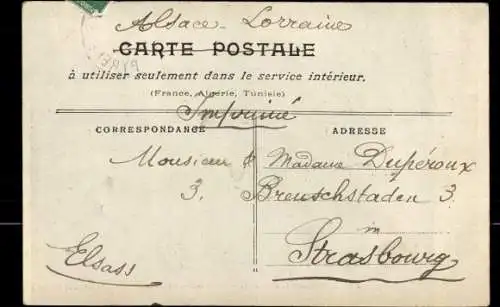 Alsace-Lorraine
CARTE POSTALE
à utiliser seulement dans le service intérieur.
(France, Algérie, Tunisie)
Imprimé
CORRESPONDANCE
ADRESSE
Monsieur & Madame Dupéroux
3. Breuschstaden 3.
in
Elsass
Strasbourg